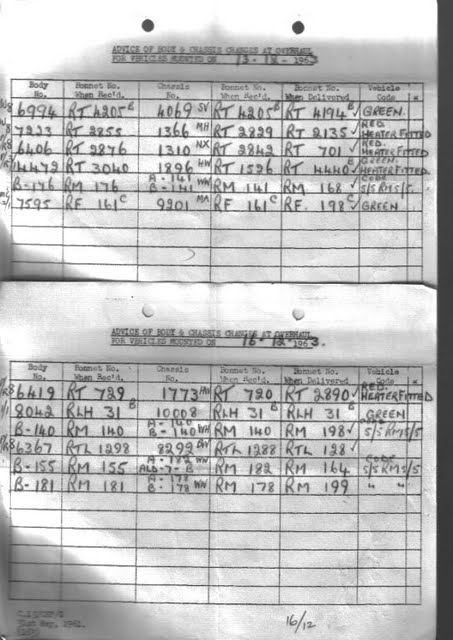 ADVICE OF BODY & CHASSIS CHANGES AT OVERHAUL
FOR VEHICLES MOUNTED ON 13-12-1963
Body No. Bonnet No. When Rec'd. Chassis No. Bonnet No. When Rec'd. Bonnet No. When Delivered Vehicle Code *
6994 RT 4205 B 4069 SV RT 4205 B RT 4194 B ✓ GREEN
7223 RT 2855 1366 MH RT 2829 RT 2135 ✓ RED. HEATER FITTED
6406 RT 2876 1310 NX RT 2842 RT 701 ✓ RED. HEATER FITTED
14472 RT 3040 1896 HW RT 1526 RT 4440 B ✓ GREEN. HEATER FITTED.
B-176 RM 176 A-141 B-141 WW RM 141 RM 168 ✓ CODE 5/5 RM5/5.
7595 RF 161 C 9201 MA RF 161 C RF 198 C ✓ GREEN
ADVICE OF BODY & CHASSIS CHANGES AT OVERHAUL
FOR VEHICLES MOUNTED ON 16-12-1963.
Body No. Bonnet No. When Rec'd. Chassis No. Bonnet No. When Rec'd. Bonnet No. When Delivered Vehicle Code *
6419 RT 729 1773 RT 720 RT 2890 ✓ RED. HEATER FITTED
8042 RLH 31 B 10008 RLH 31 B RLH 31 B ✓ GREEN
B-140 RM 140 A-140 B-140 WW RM 140 RM 198 ✓ 5/5 RM5/5
6367 RTL 1298 8299 RTL 1288 RTL 128 ✓
B-155 RM 155 A-182 WW ALB-7-B RM 182 RM 164 CODE 5/5 RM 5/5
B-181 RM 181 A-178 B-178 WW RM 178 RM 199 " "
31st May, 1961.
16/12